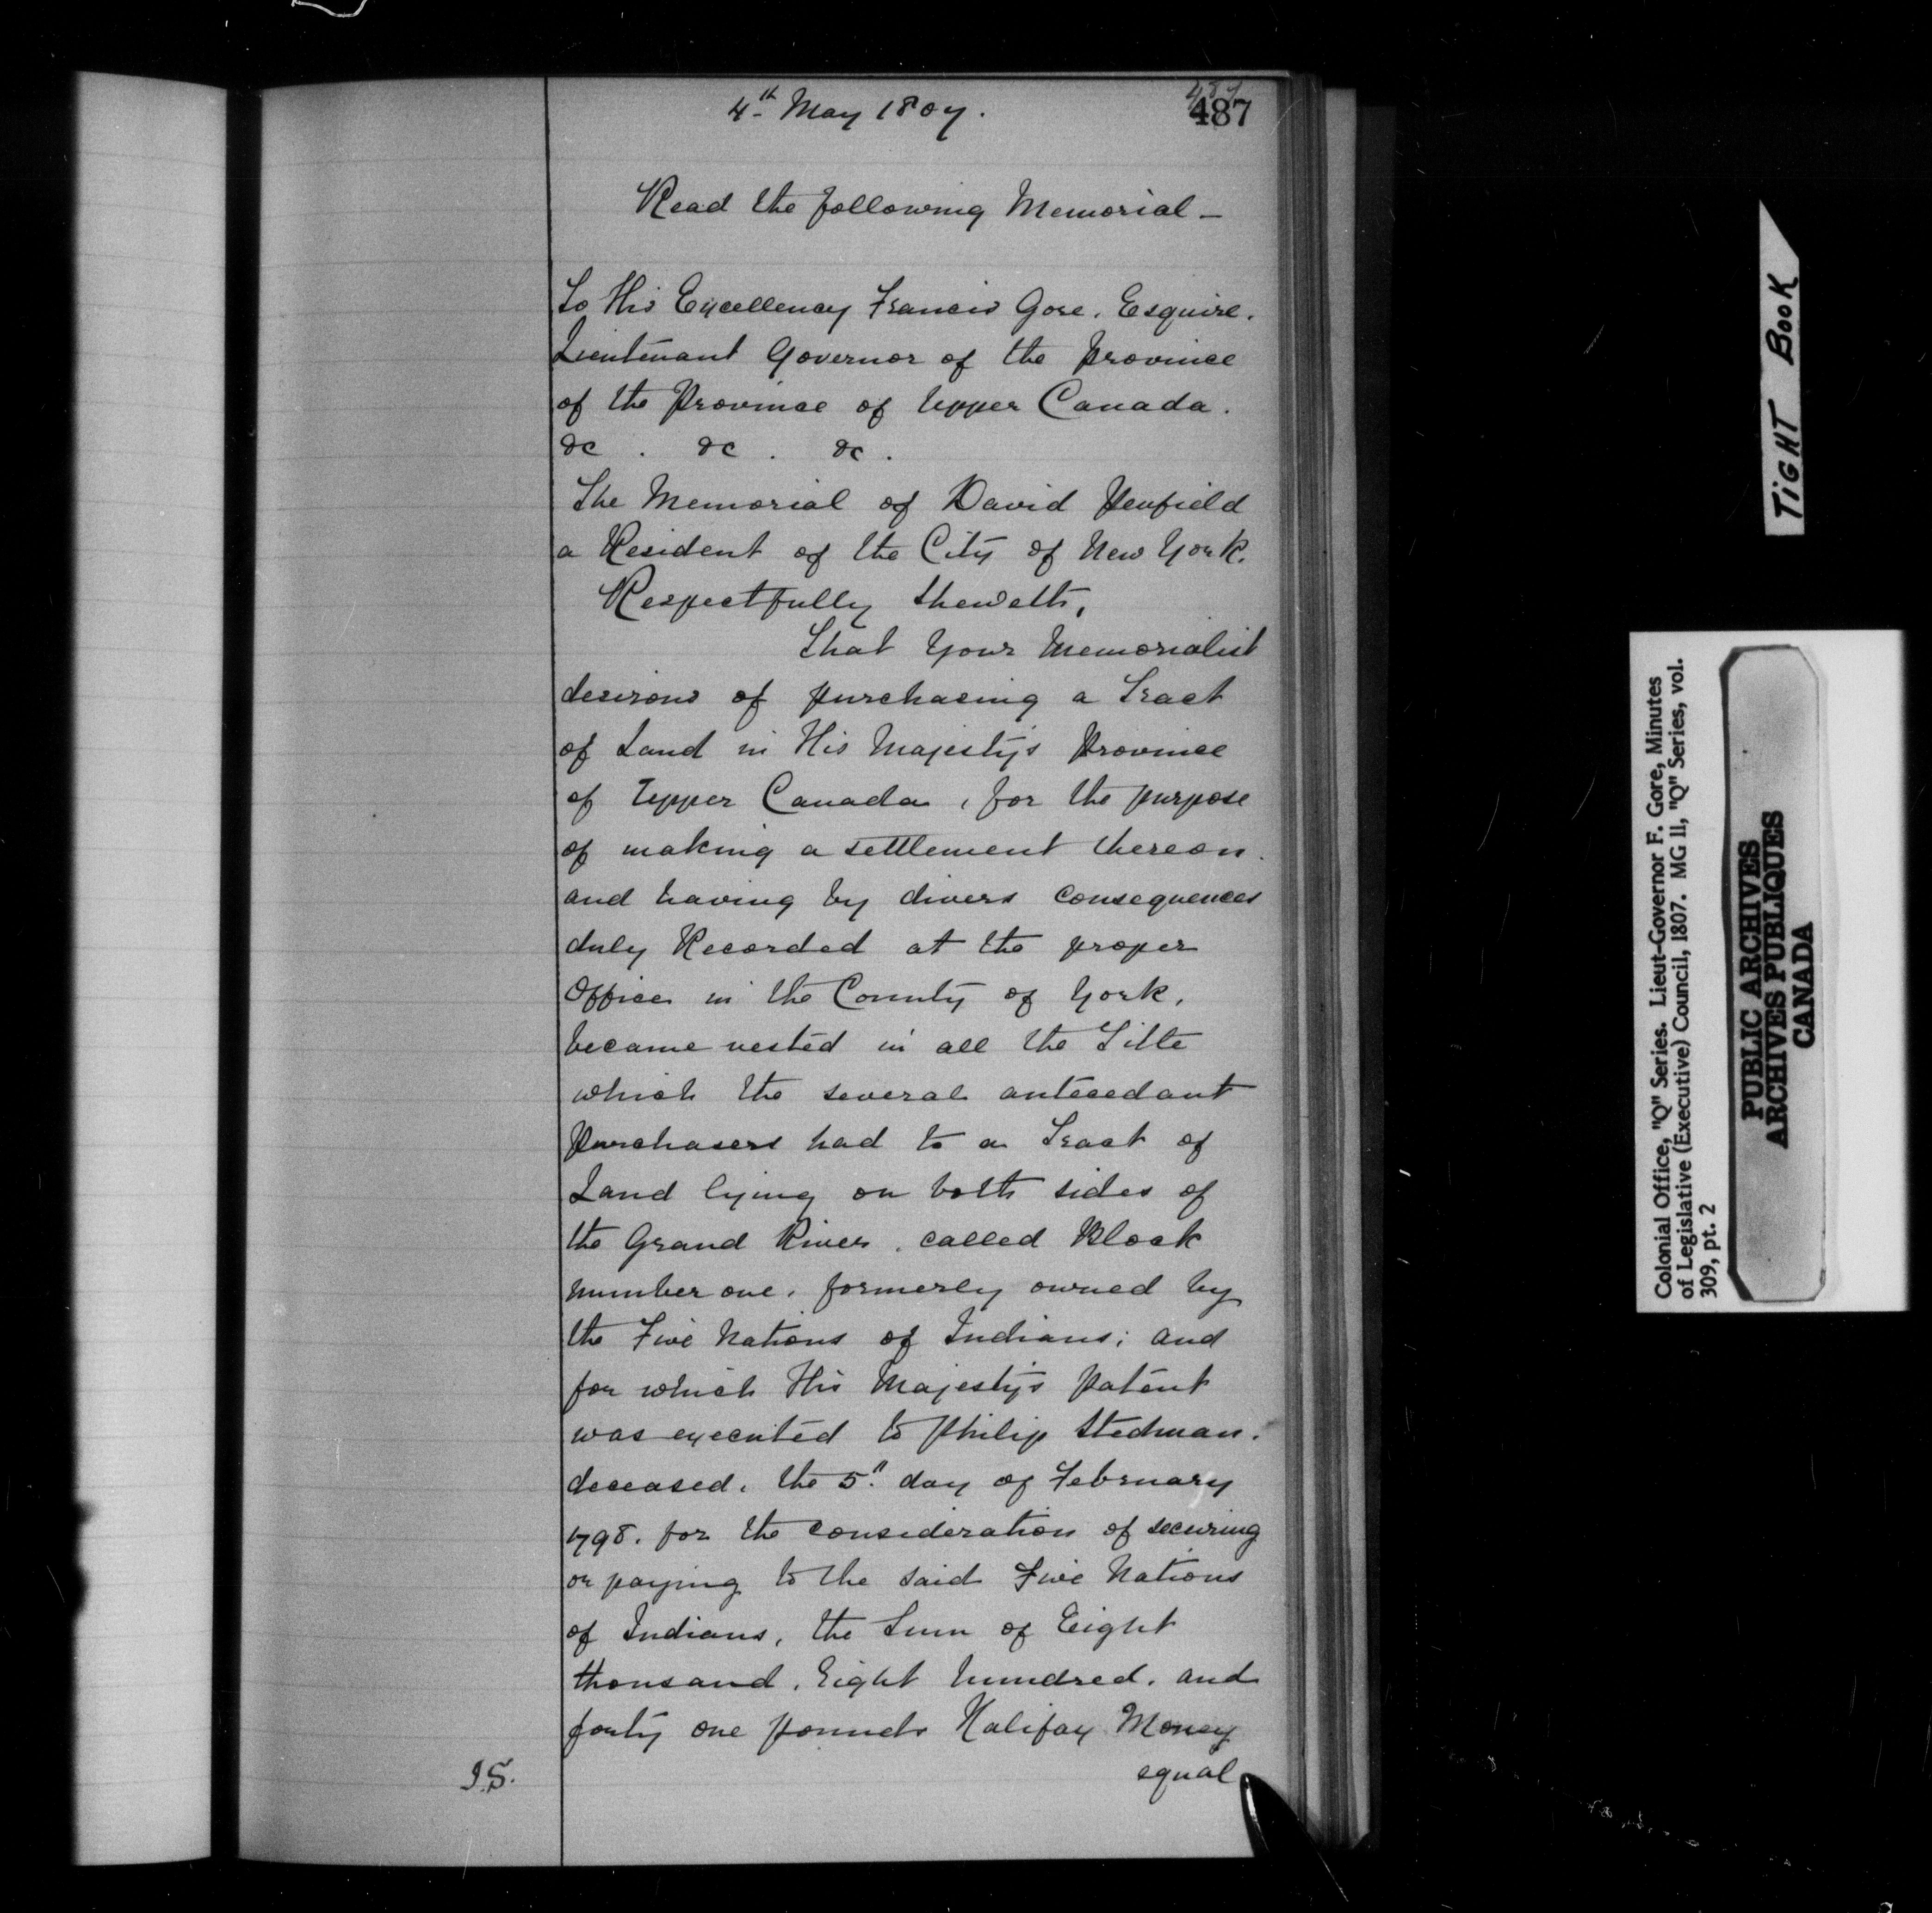 4th May 1807.
487
487
Read the following Memorial —
To His Excellency Francis Gore, Esquire.
Lieutenant Governor of the Province
of the Province of Upper Canada.
&c . &c . &c .
The Memorial of David Penfield
a Resident of the City of New York.
Respectfully sheweth,
That Your Memorialist
desirous of purchasing a Tract
of Land in His Majesty's Province
of Upper Canada, for the purpose
of making a settlement thereon.
and having by divers consequences
duly Recorded at the proper
Office in the County of York,
became vested in all the Title
which the several antecedant
Purchasers had to a Tract of
Land lying on both sides of
the Grand River, called Block
number one, formerly owned by
the Five Nations of Indians; and
for which His Majesty's Patent
was executed to Philip Stedman.
deceased, the 5th day of February
1798. for the consideration of securing
or paying to the said Five Nations
of Indians, the Sum of Eight
thousand, Eight hundred, and
forty one pounds Halifax Money
equal
J.S.
TIGHT BOOK
Colonial Office, "Q" Series. Lieut-Governor F. Gore, Minutes
of Legislative (Executive) Council, 1807. MG 11, "Q" Series, vol.
309, pt. 2
PUBLIC ARCHIVES
ARCHIVES PUBLIQUES
CANADA